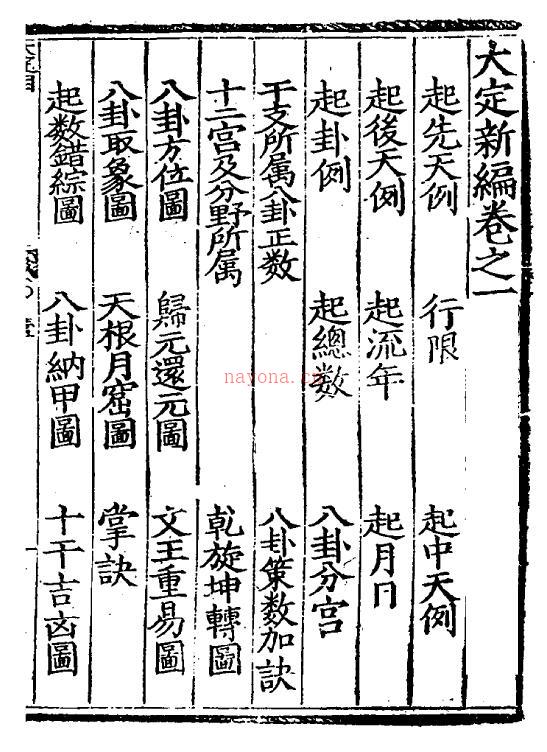 大定新編卷之一
起先天例 行限 起中天例
起後天例 起流年 起月日
起卦例 起總数 八卦分宮
干支所属八卦正数 八卦策数加訣
十二宮及分野所属 乾旋坤轉圖
八卦方位圖 歸元還元圖 文王重易圖
八卦取象圖 天根月窟圖 掌訣
起数錯綜圖 八卦納甲圖 十干吉凶圖
nayona.cn